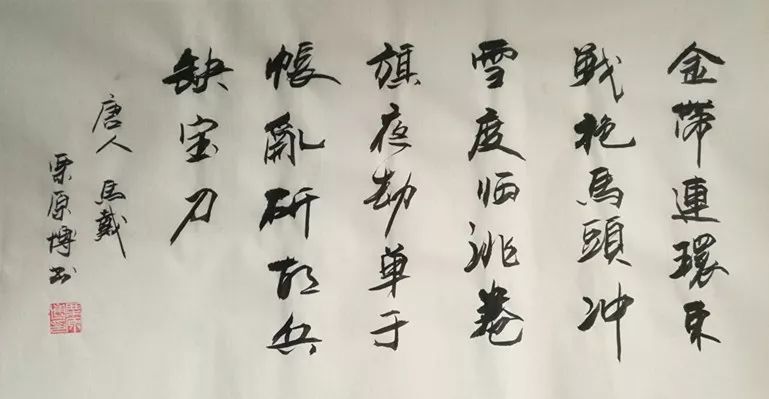 金帶連環束
战袍馬頭冲
雪度临洮卷
旗夜劫單于
帳亂斫胡兵
缺宝刀
唐人 馬戴
栗原博书